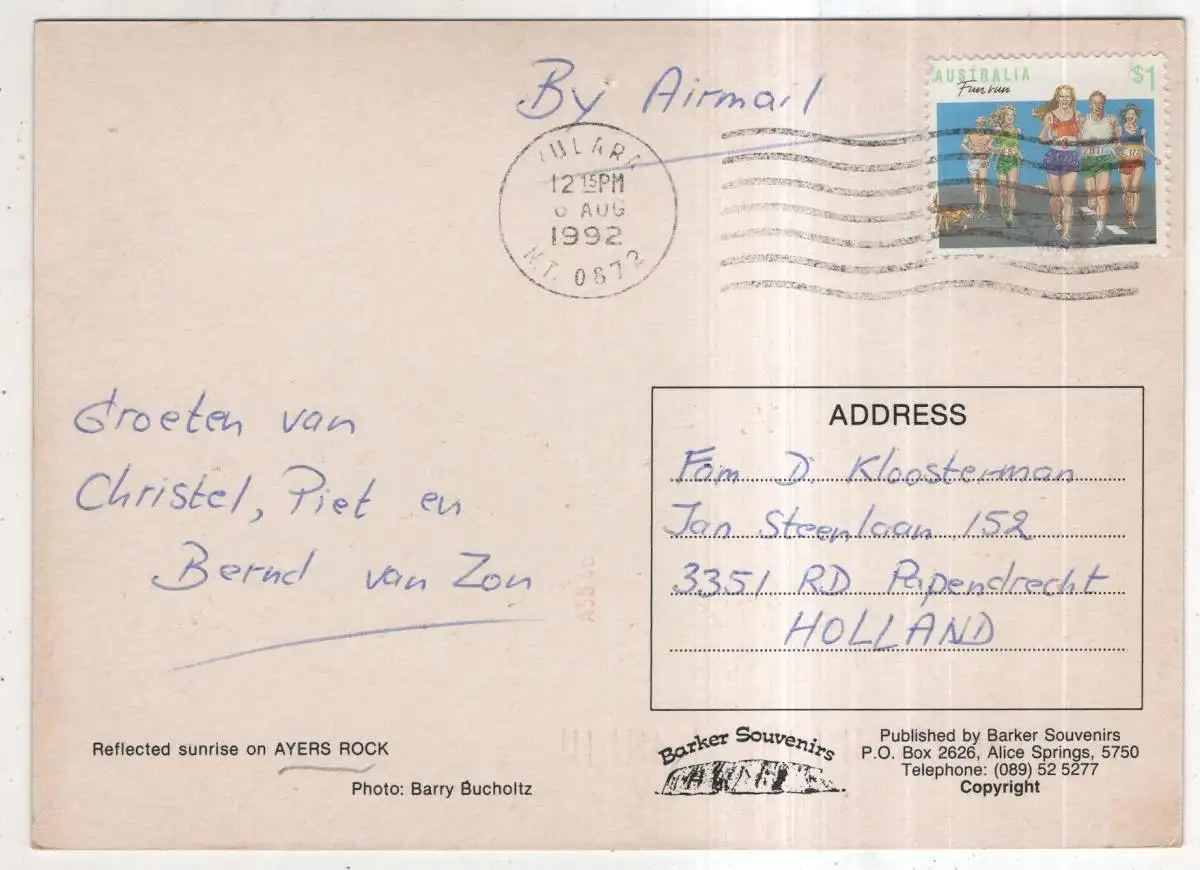 By Airmail
AUSTRALIA $1
Fun run
YULARA
12 15PM
6 AUG
1992
N.T. 0872
Groeten van
Christel, Piet en
Bernd van Zon
ADDRESS
Fam D. Kloosterman
Jan Steenlaan 152
3351 RD Papendrecht
HOLLAND
Reflected sunrise on AYERS ROCK
Photo: Barry Bucholtz
Barker Souvenirs
Published by Barker Souvenirs
P.O. Box 2626, Alice Springs, 5750
Telephone: (089) 52 5277
Copyright